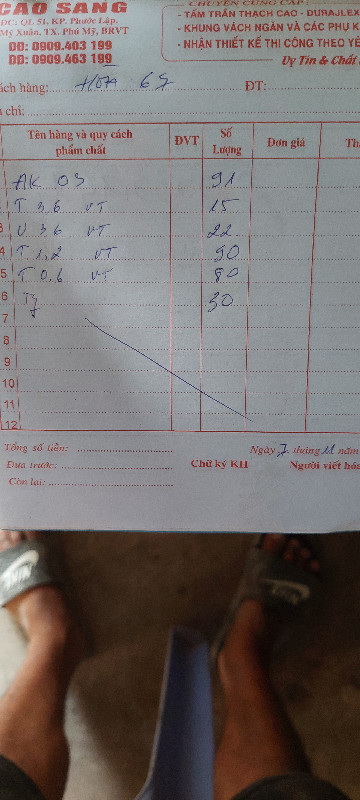 CAO SANG
ĐC: QL 51, KP. Phước Lập,
Mỹ Xuân, TX. Phú Mỹ, BRVT
DĐ: 0909.403 199
DĐ: 0909.463 199
CHUYÊN CUNG CẤP
- TẤM TRẦN THẠCH CAO - DURAFLEX
- KHUNG VÁCH NGĂN VÀ CÁC PHỤ K
- NHẬN THIẾT KẾ THI CÔNG THEO YÊ
Uy Tín & Chất
ách hàng: HOA 65 ĐT:
chỉ:
Tên hàng và quy cách phẩm chất ĐVT Số Lượng Đơn giá Th
AK 03 91
T 3.6 VT 15
3 U 3.6 VT 22
4 T 1,2 VT 90
5 T 0.6 VT 80
6 Ty 30
7
8
9
10
11
12
Tổng số tiền:
Đưa trước:
Còn lại:
Ngày 7 tháng 11 năm
Chữ ký KH Người viết hóa
NIKE